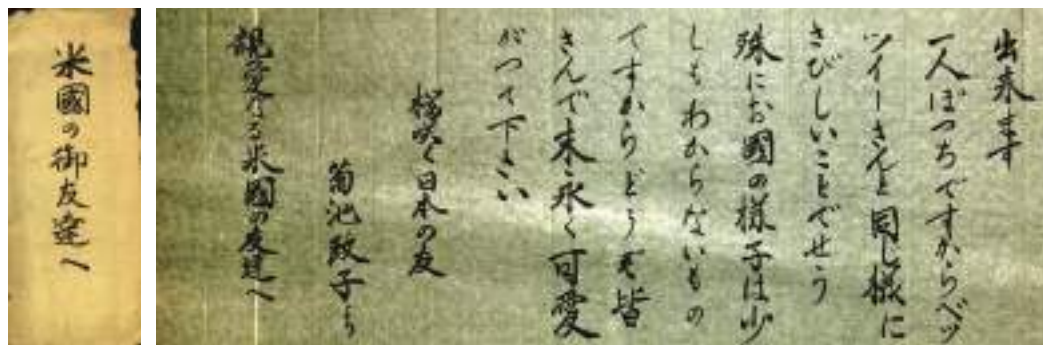 米國の御友達へ
出来ます
一人ぼつちですからベッ
ツイーさんと同じ様に
さびしいことでせう
殊にお國の様子は少
しもわからないもの
ですからどうぞ皆
さんで末永く可愛
がつて下さい
桜咲く日本の友
菊池政子より
親愛なる米國の友達へ